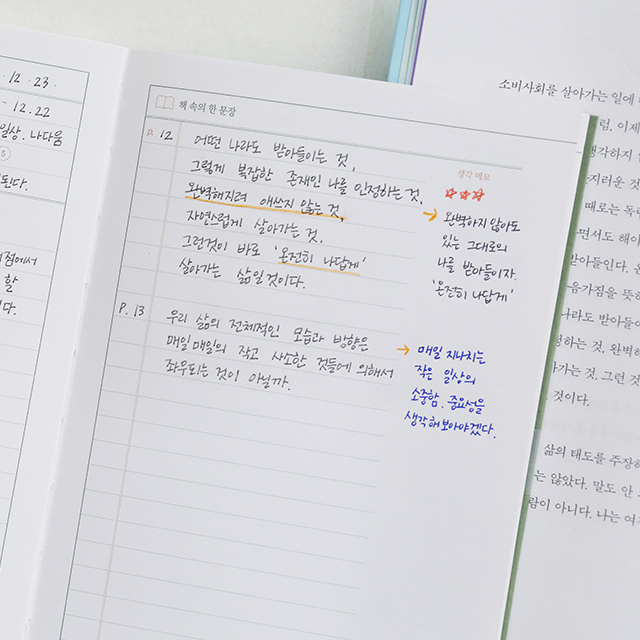 12.23
12.22
일상. 나다움
5
된다.
점에서
할
다.
책 속의 한 문장
p. 12
어떤 나라도 받아들이는 것,
그렇게 복잡한 존재인 나를 인정하는 것.
완벽해지려 애쓰지 않는 것,
자연스럽게 살아가는 것.
그런것이 바로 '온전히 나답게'
살아가는 삶일것이다.
P. 13
우리 삶의 전체적인 모습과 방향은
매일매일의 작고 사소한 것들에 의해서
좌우되는 것이 아닐까.
생각 메모
완벽하지 않아도
있는 그대로의
나를 받아들이자.
'온전히 나답게'
매일 지나치는
작은 일상의
소중함. 중요성을
생각해보아야겠다.
소비사회를 살아가는 일에
럼, 이제
생각하지
지러운 것
때로는 독
면서도 해야
받아들인다.
음가짐을 뜻하
나라도 받아들이
하는 것, 완벽하
가는 것. 그런 것
것이다.
삶의 태도를 주장하
는 않았다. 말도 안
람이 아니다. 나는 여